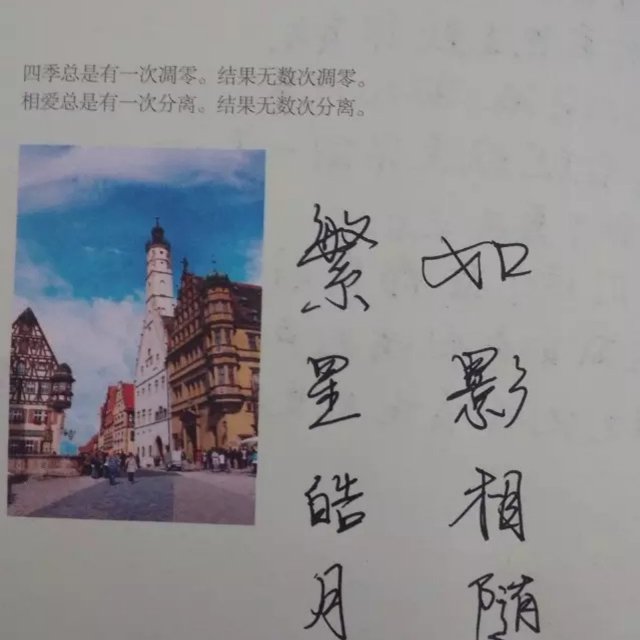 四季总是有一次凋零。结果无数次凋零。
相爱总是有一次分离。结果无数次分离。
繁星皓月
如影相随